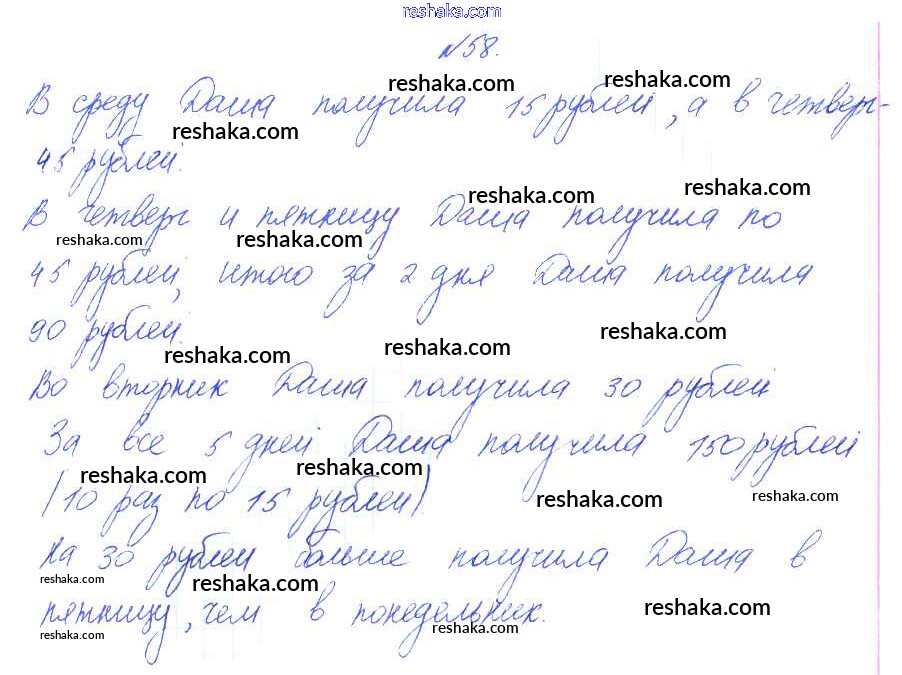 reshaka.com
№58.
reshaka.com reshaka.com
В среду Даша получила 15 рублей, а в четверг-
reshaka.com
45 рублей.
reshaka.com reshaka.com
В четверг и пятницу Даша получила по
reshaka.com reshaka.com
45 рублей, итого за 2 дня Даша получила
90 рублей.
reshaka.com reshaka.com reshaka.com
Во вторник Даша получила 30 рублей
За все 5 дней Даша получила 150 рублей
reshaka.com reshaka.com reshaka.com reshaka.com
(10 раз по 15 рублей)
На 30 рублей больше получила Даша в
reshaka.com reshaka.com
пятницу, чем в понедельник.
reshaka.com reshaka.com reshaka.com